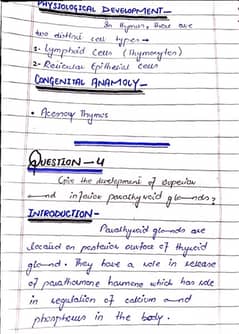 PHYSIOLOGICAL DEVELOPMENT -
In thymus, there are
two distinct cell types →
1. Lymphoid Cells (Thymocytes)
2. Reticular Epithelial cells
CONGENITAL ANAMOLY -
• Accessory Thymus
QUESTION - 4
Give the development of superior
and inferior parathyroid glands?
INTRODUCTION -
Parathyroid glands are
located on posterior surface of thyroid
gland. They have a role in release
of parathormone harmone which has role
in regulation of calcium and
phosphorus in the body.